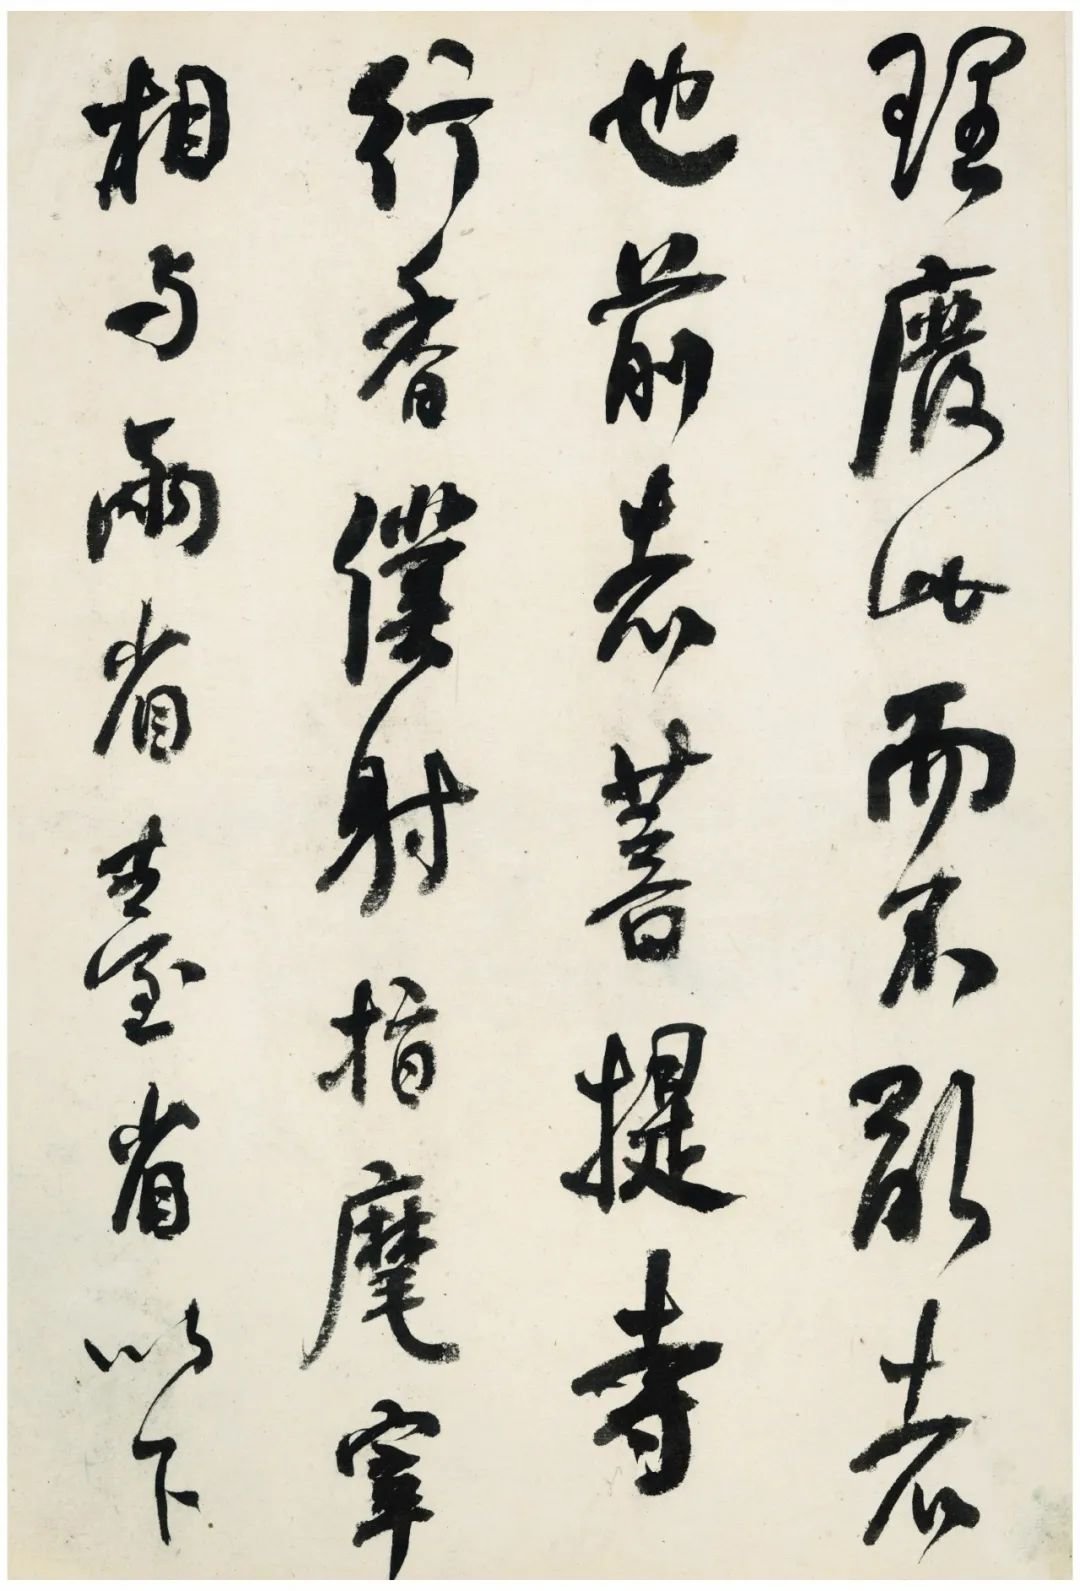 理廢此而不亂者
也前者菩提寺
行香僕射指麾宰
相与兩省臺省以下